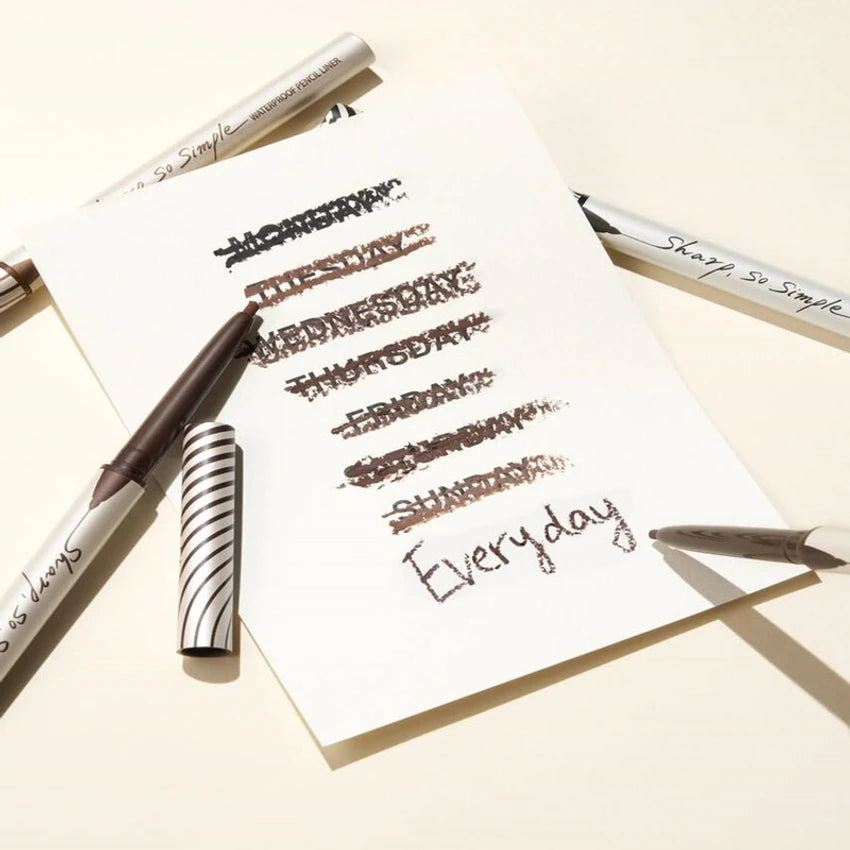 Sharp, So Simple WATERPROOF PENCIL LINER
MONDAY
TUESDAY
WEDNESDAY
THURSDAY
FRIDAY
SATURDAY
SUNDAY
Everyday
Sharp, So Simple
Sharp, So S